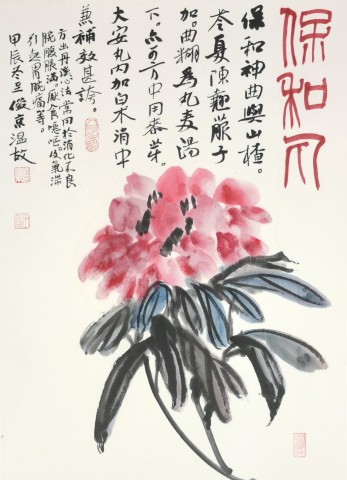 保和丸
保和神曲與山楂。
苓夏陳翹菔子
加。曲糊為丸麦湯
下。亦可方中用麥芽。
大安丸内加白术消中
兼補效甚誇。
方出丹溪心法常用於消化不良
脘腹脹滿厭食噁嘔及氣滯
引起胃脘痛等。
甲辰冬至俊京温故